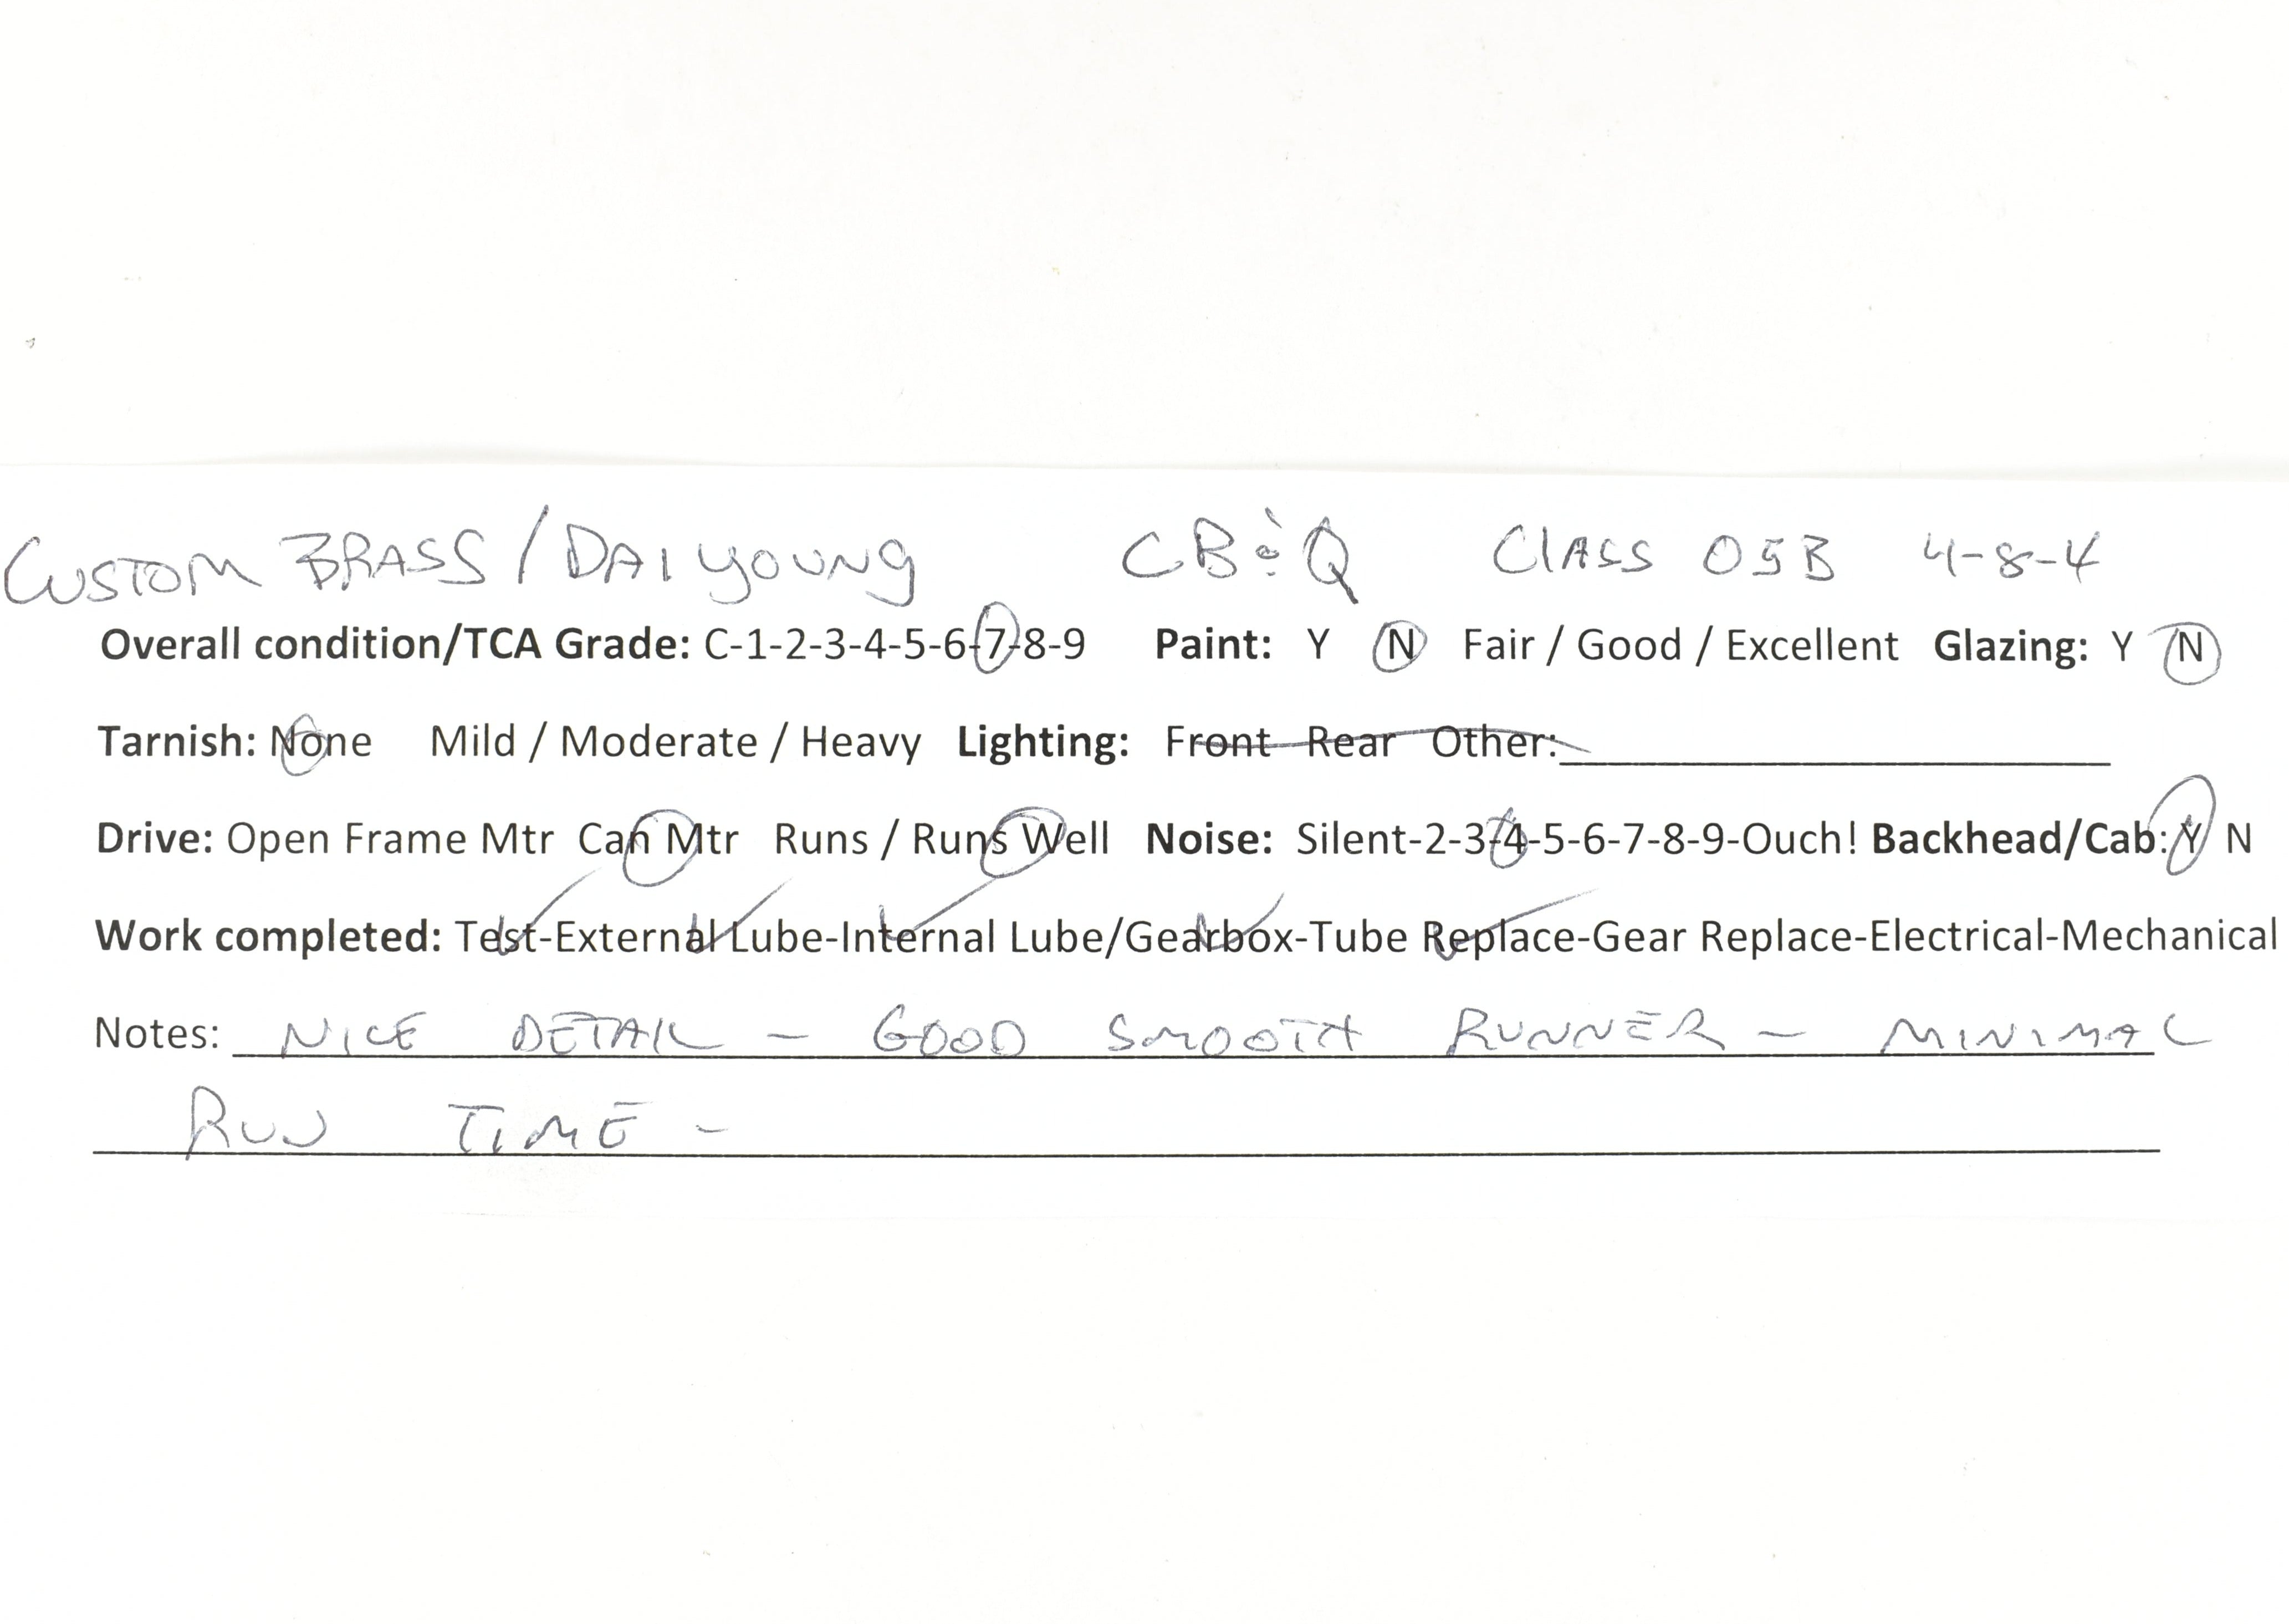 CUSTOM BRASS / DAI YOUNG CB&Q CLASS O5B 4-8-4
Overall condition/TCA Grade: C-1-2-3-4-5-6-7-8-9 Paint: Y N Fair / Good / Excellent Glazing: Y N
Tarnish: None Mild / Moderate / Heavy Lighting: Front Rear Other:
Drive: Open Frame Mtr Can Mtr Runs / Runs Well Noise: Silent-2-3-4-5-6-7-8-9-Ouch! Backhead/Cab: Y N
Work completed: Test-External Lube-Internal Lube/Gearbox-Tube Replace-Gear Replace-Electrical-Mechanical
Notes: NICE DETAIL - GOOD SMOOTH RUNNER - MINIMAL
RUN TIME -